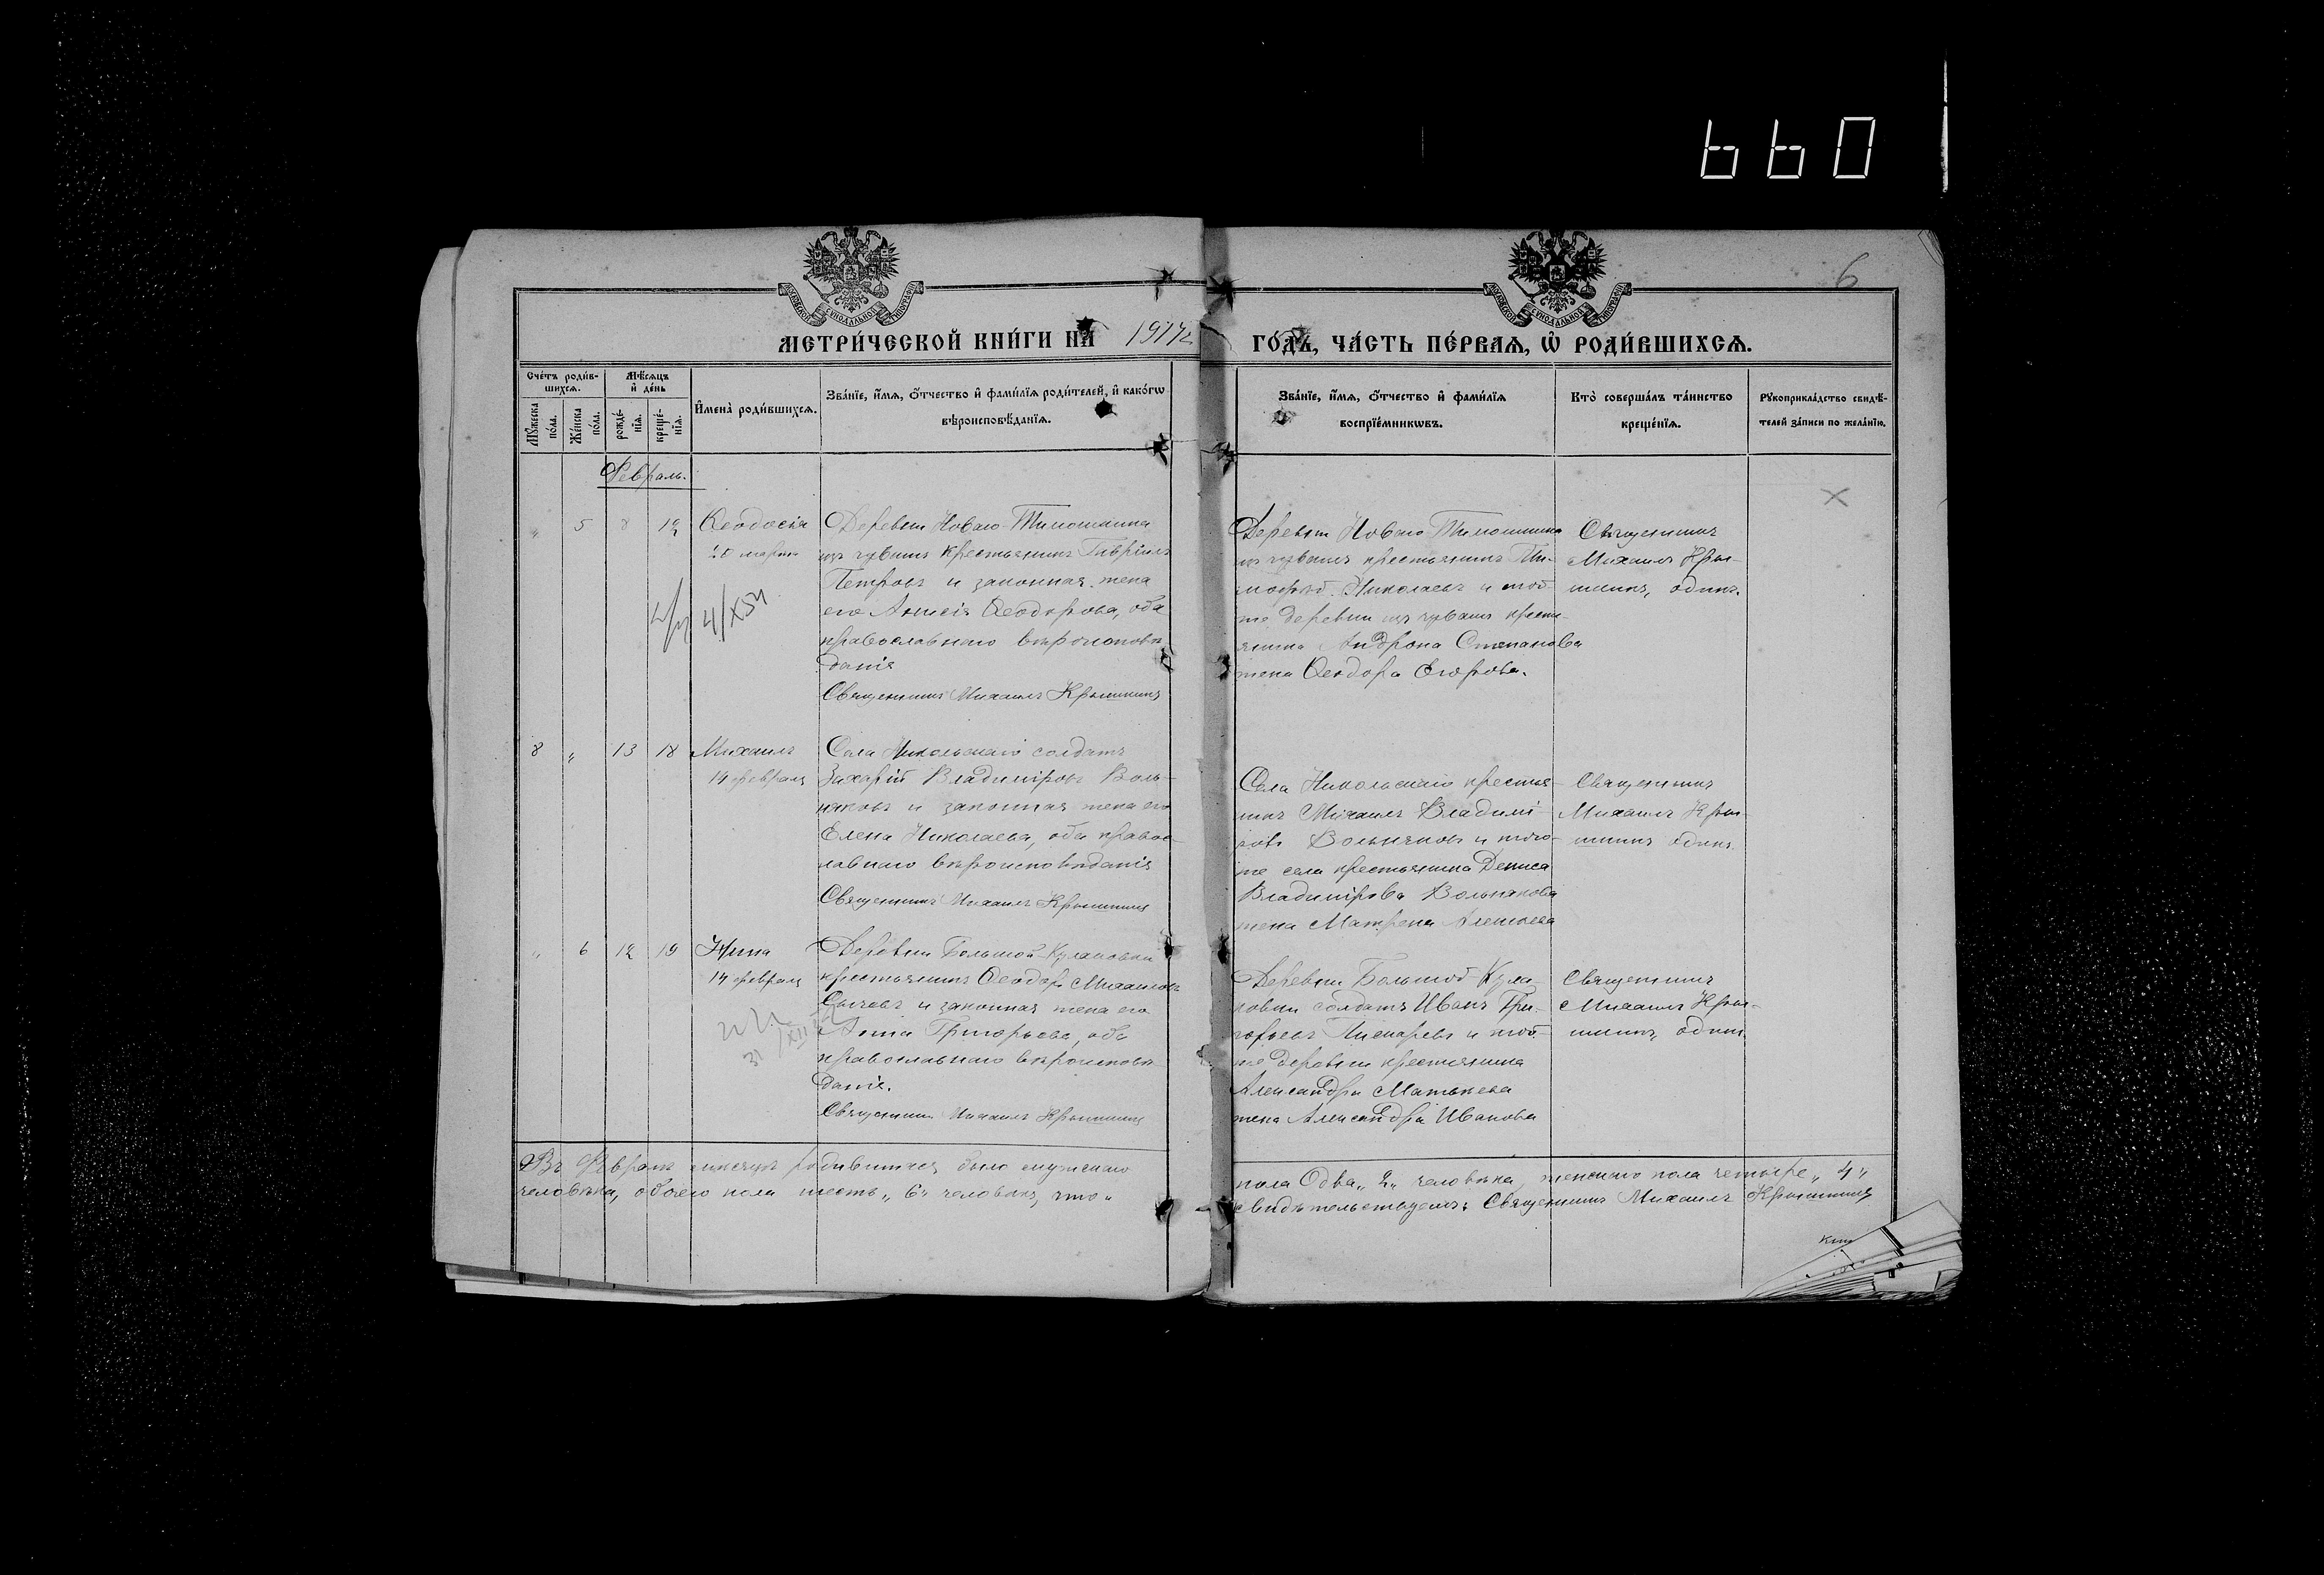 660
6
МОСКОВСКОЙ СѴНОДАЛЬНОЙ ТИПОГРАФІИ
МОСКОВСКОЙ СѴНОДАЛЬНОЙ ТИПОГРАФІИ
МЕТРИ́ЧЕСКОЙ КНИ́ГИ НА 1917г.
ГО́ДЪ, ЧА́СТЬ ПЕ́РВАѦ, Ѡ҆ РОДИ́ВШИХСѦ.
Сче́тъ роди́в-
шихсѧ.
Мꙋ́жеска по́ла.
Же́нска по́ла.
Мѣ́сѧцъ и҆ де́нь
рожде́-
нїѧ.
креще́-
нїѧ.
И҆мена̀ роди́вшихсѧ.
Зва́нїе, и҆́мѧ, ѻ҆́тчество и҆ фами́лїѧ роди́телей, и҆ како́гѡ
вѣроисповѣ́данїѧ.
Зва́нїе, и҆́мѧ, ѻ҆́тчество и҆ фами́лїѧ
воспрїе́мникѡвъ.
Кто̀ соверша́лъ та́инство
креще́нїѧ.
Рꙋкоприкла́дство свидѣ́-
телей за́писи по жела́нїю.
Февраль.
" 5 8 12 Ѳеодосія
Деревни Новаго-Тимошкина
изъ чувашъ крестьянинъ Гавріилъ
Петровъ и законная жена
его Анисія Ѳеодорова, оба
православнаго вѣроисповѣ-
данія
Священникъ Михаилъ Крышинъ
4/X54
Деревни Новаго Тимошкина
изъ чувашъ крестьянинъ Ти-
моѳей Николаевъ и той
же деревни изъ чувашъ кресть-
янина Андрона Степанова
жена Ѳеодора Егорова.
Священникъ
Михаилъ Кры-
шинъ, одинъ.
8 " 13 18 Михаилъ
14 февраля
Села Никольскаго солдатъ
Захарій Владиміровъ Воль-
няковъ и законная жена его
Елена Николаева, оба правос-
лавнаго вѣроисповѣданія
Священникъ Михаилъ Крышинъ
Села Никольскаго крестья-
нинъ Михаилъ Владимі-
ровъ Вольняковъ и того-
же села крестьянина Дениса
Владимірова Вольнякова
жена Матрена Алексѣева
Священникъ
Михаилъ Кры-
шинъ одинъ.
" 6 12 19 Нина
14 февраля
Деревни Большой-Кулаковки
крестьянинъ Ѳеодоръ Михаиловъ
Сычевъ и законная жена его
Анна Григорьева, оба
православнаго вѣроисповѣ-
данія.
Священникъ Михаилъ Крышинъ
Деревни Большой-Кула-
ковки солдатъ Иванъ Гри-
горьевъ Писаревъ и той-
же деревни крестьянина
Александра Матвѣева
жена Александра Иванова
Священникъ
Михаилъ Кры-
шинъ, одинъ.
Въ Февралѣ мѣсяцѣ родившихся было мужскаго
человѣка, обоего пола шесть "6" человѣкъ, что
пола два "2" человѣка, женскаго пола четыре "4"
свидѣтельствуемъ: Священникъ Михаилъ Крышинъ